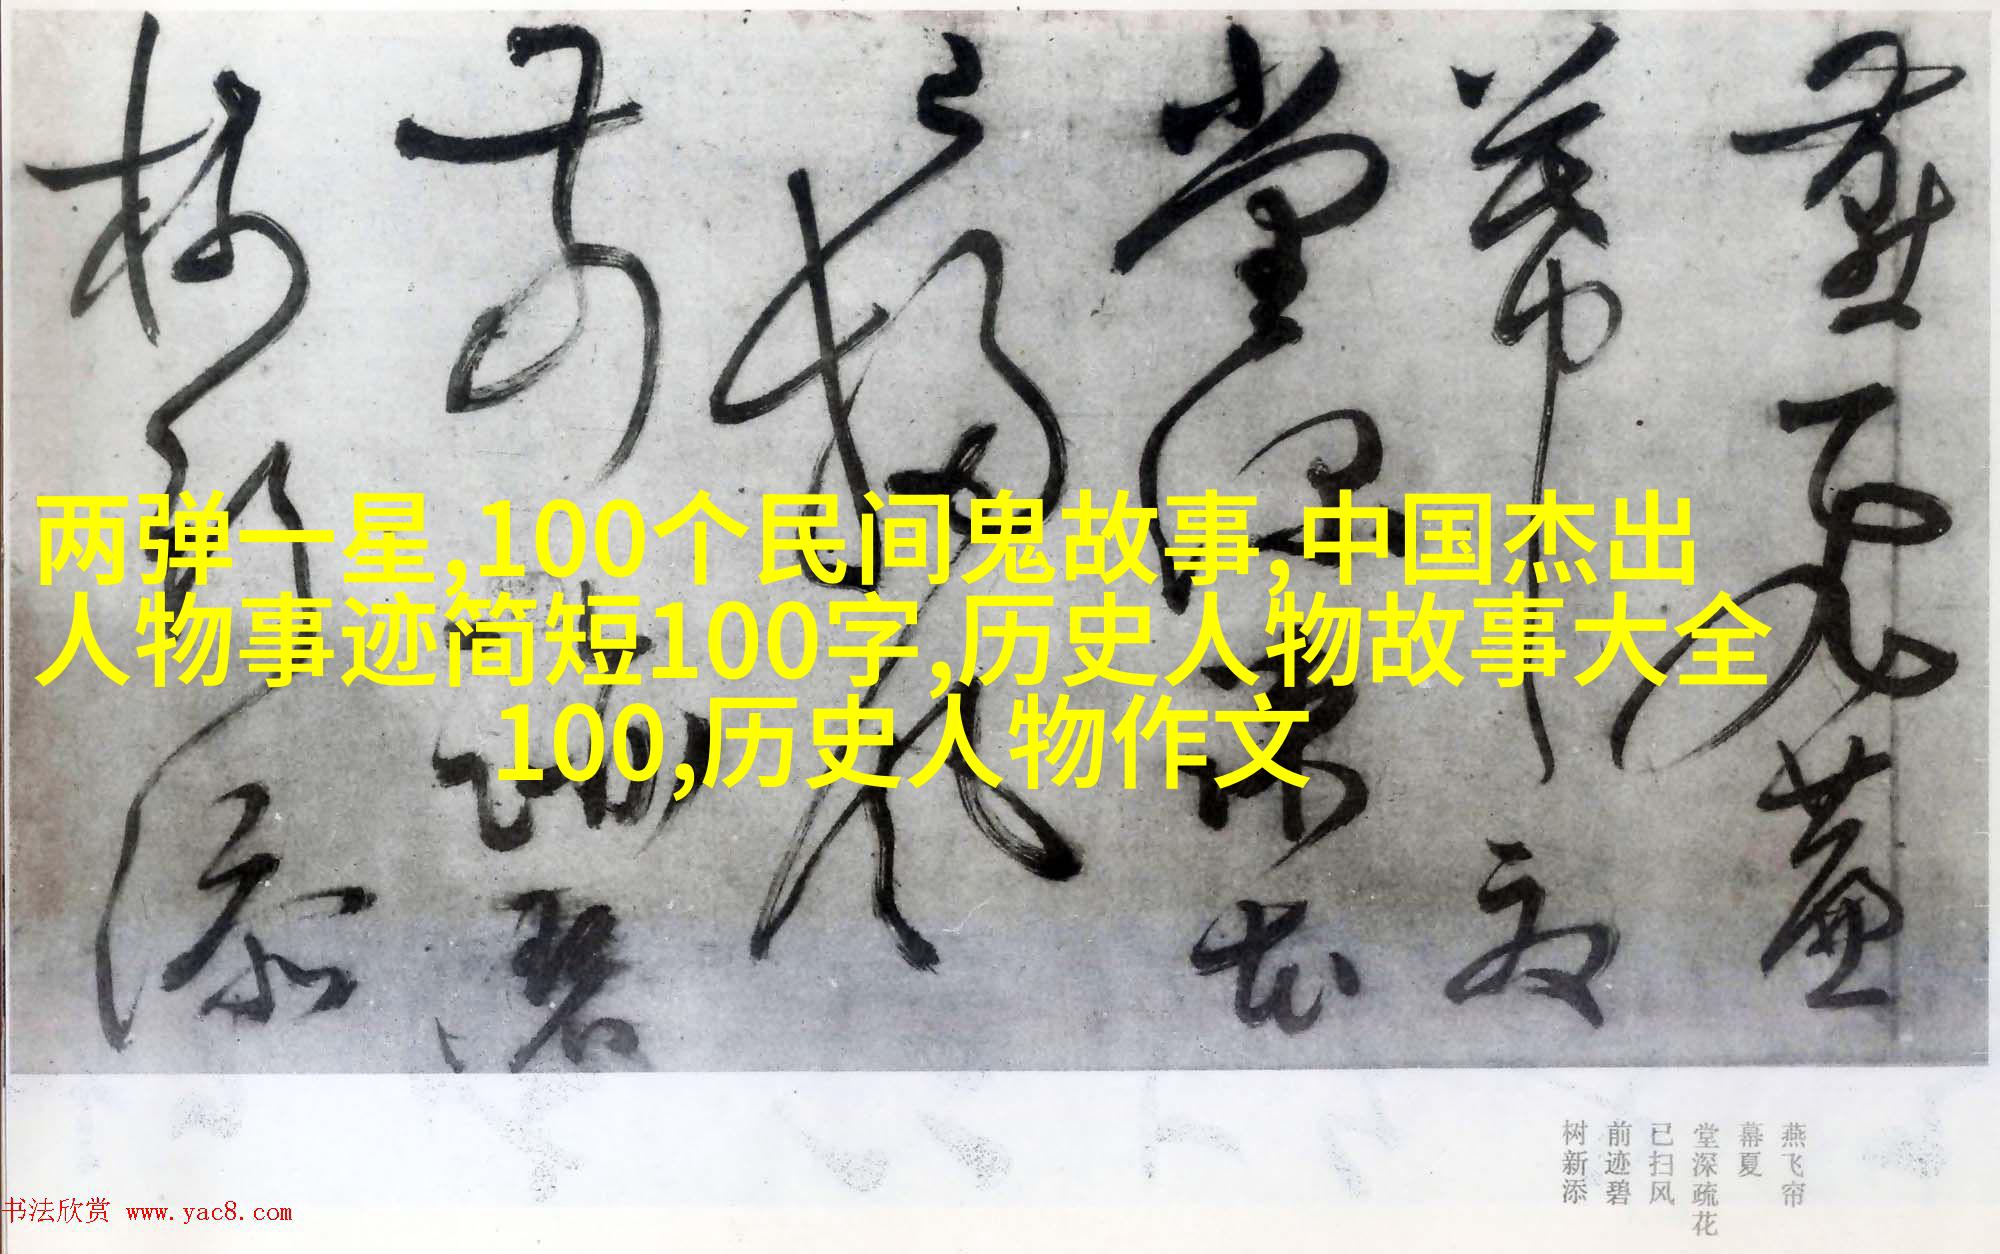 燕飞帘
幕夏
堂深疏花
已扫风
前迹碧
树新添
两弹一星,100个民间鬼故事,中国杰出
人物事迹简短100字,历史人物故事大全
100,历史人物作文
燕飞帘
幕夏
堂深疏花
已扫风
前迹碧
树新添
书法欣赏 www.yac8.com